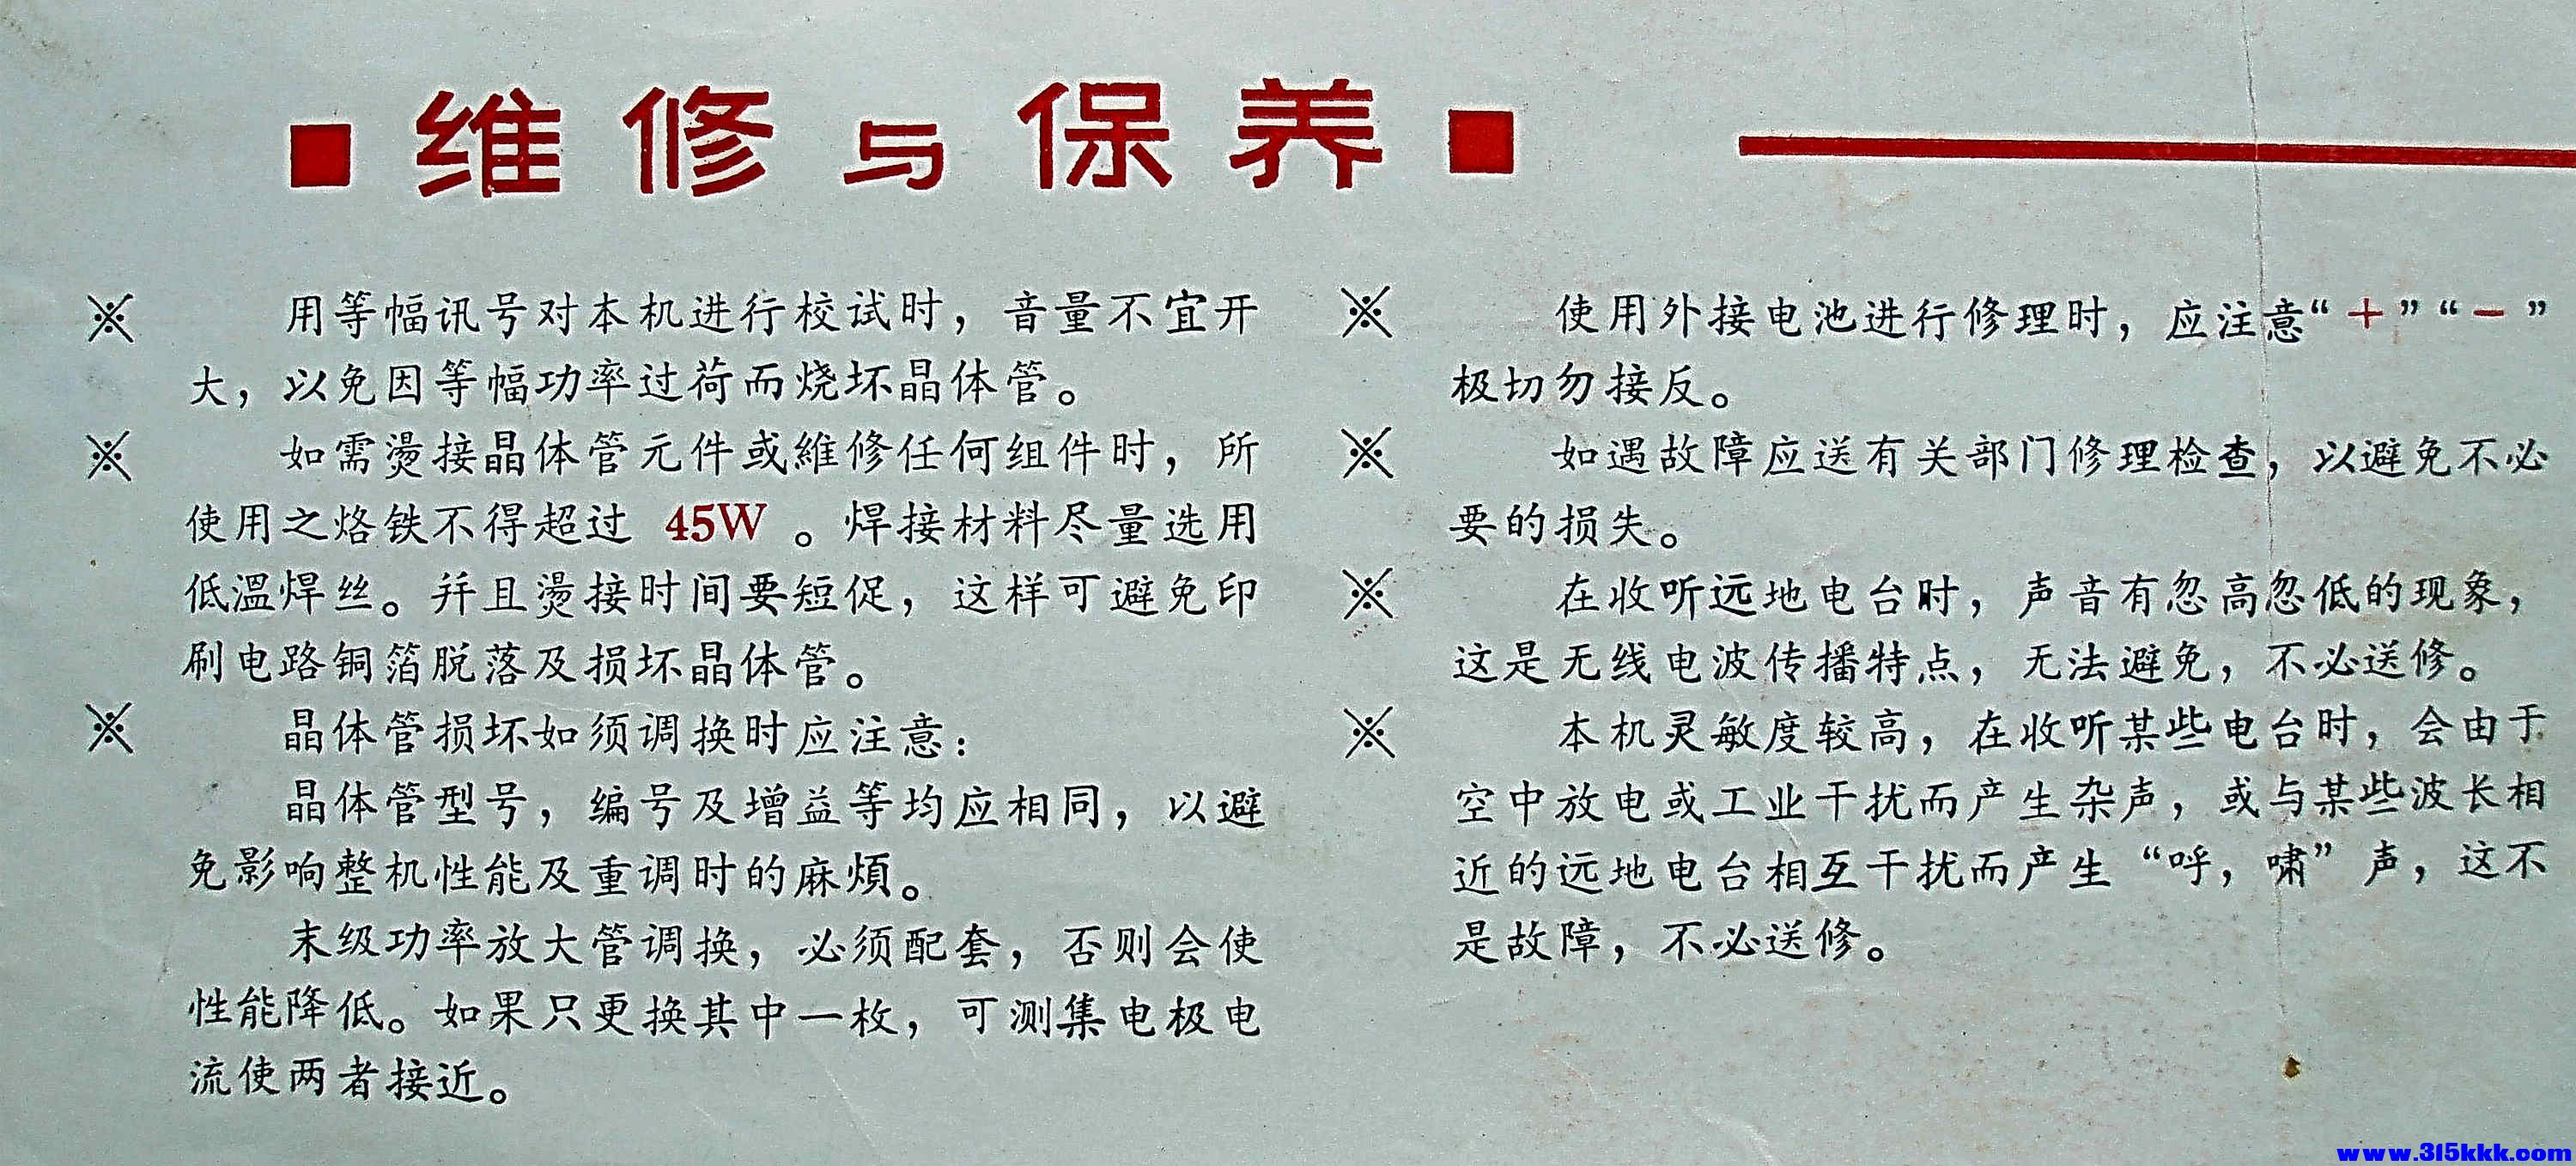 ■ 维修与保养 ■
※ 用等幅讯号对本机进行校试时，音量不宜开
大，以免因等幅功率过荷而烧坏晶体管。
※ 如需燙接晶体管元件或維修任何组件时，所
使用之烙铁不得超过 45W 。焊接材料尽量选用
低溫焊丝。并且燙接时间要短促，这样可避免印
刷电路铜箔脱落及损坏晶体管。
※ 晶体管损坏如须调换时应注意：
晶体管型号，编号及增益等均应相同，以避
免影响整机性能及重调时的麻煩。
末级功率放大管调换，必须配套，否则会使
性能降低。如果只更换其中一枚，可测集电极电
流使两者接近。
※ 使用外接电池进行修理时，应注意“＋”“－”
极切勿接反。
※ 如遇故障应送有关部门修理检查，以避免不必
要的损失。
※ 在收听远地电台时，声音有忽高忽低的现象，
这是无线电波传播特点，无法避免，不必送修。
※ 本机灵敏度较高，在收听某些电台时，会由于
空中放电或工业干扰而产生杂声，或与某些波长相
近的远地电台相互干扰而产生“呼，啸”声，这不
是故障，不必送修。
www.315kkk.com